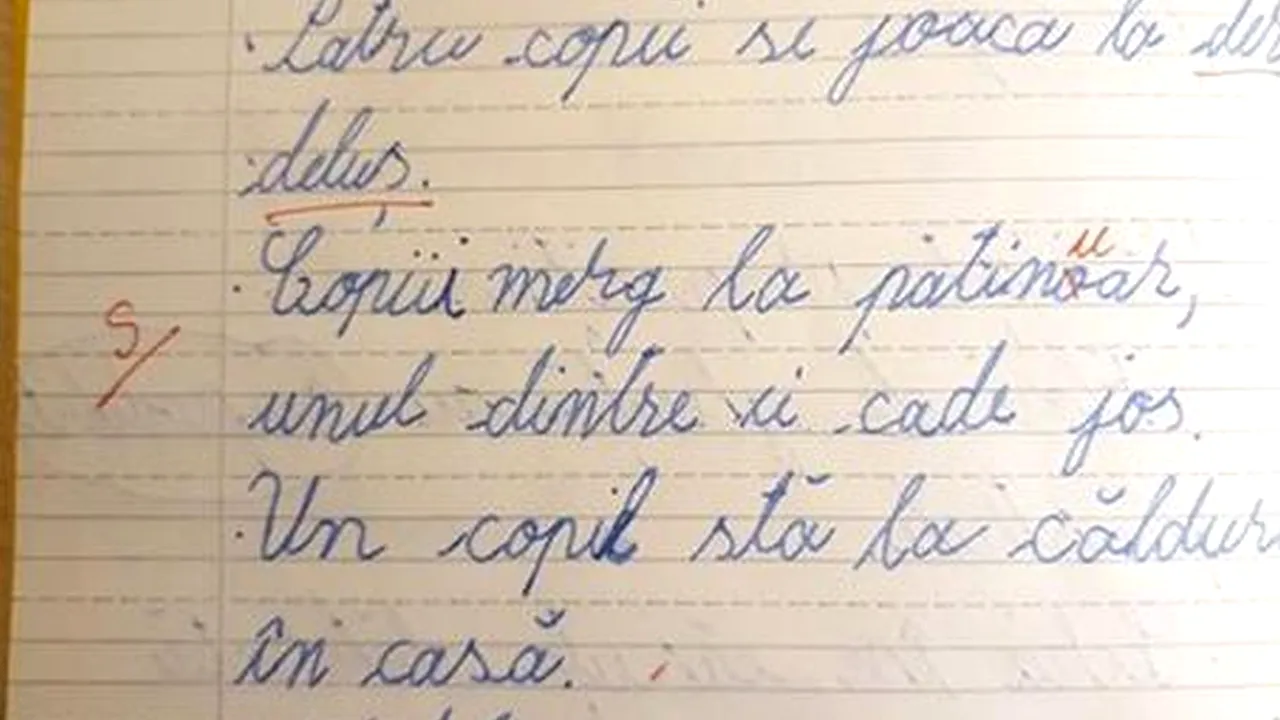 Patru copii se joaca la der
deluș.
Copiii merg la patinoar,
unul dintre ei cade jos.
Un copil stă la căldur
în casă.